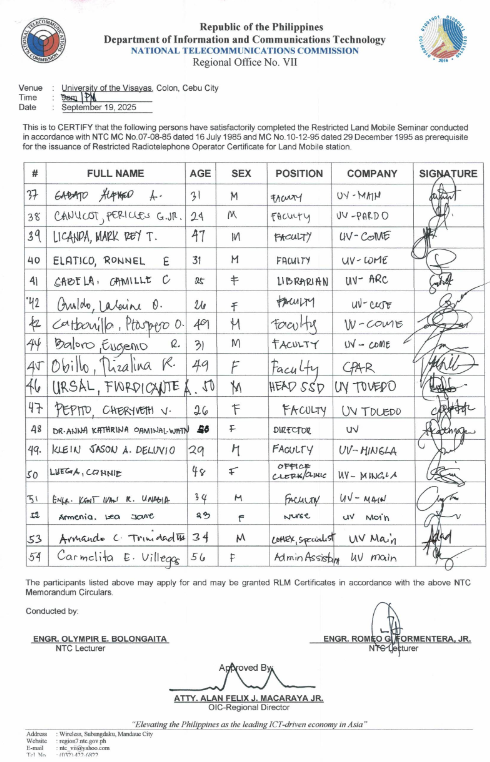 Republic of the Philippines
Department of Information and Communications Technology
NATIONAL TELECOMMUNICATIONS COMMISSION
Regional Office No. VII
Venue : University of the Visayas, Colon, Cebu City
Time : 1PM
Date : September 19, 2025
This is to CERTIFY that the following persons have satisfactorily completed the Restricted Land Mobile Seminar conducted
in accordance with NTC MC No.07-08-85 dated 16 July 1985 and MC No.10-12-95 dated 29 December 1995 as prerequisite
for the issuance of Restricted Radiotelephone Operator Certificate for Land Mobile station.
# FULL NAME AGE SEX POSITION COMPANY SIGNATURE
37 A. 31 M FACULTY UV-MAIN
38 CANUCOT, PERICLES G. JR. 29 M FACULTY UV-PARDO
39 LICANDA, MARK REY T. 47 M FACULTY UV-COME
40 ELATICO, RONNEL E 31 M FACULTY UV-COME
41 GABELA, CAMILLE C 25 F LIBRARIAN UV-ARC
42 O. 26 F FACULTY
42 Carbonilla, Prospero O. 49 M Faculty UV-COME
44 Baloro, Eugenio R. 31 M FACULTY UV-COME
45 Obillo, Rizalina R. 49 F Faculty
46 URSAL, FLORDICANTE A. 50 M HEAD SSD UV TOLEDO
47 PEPITO, V. 26 F FACULTY UV TOLEDO
48 DR. ANNA KATHRINA 50 F DIRECTOR UV
49. KLEIN JASON A. DELUVIO 29 M FACULTY UV-MINGLA
50 LUEGA, CONNIE 48 F OFFICE CLERK/CLINIC UV-MINGLA
51 ENGR. KENT IVAN R. 34 M FACULTY UV-MAIN
Armenia, Lea Jane F Nurse UV Main
53 Armando C. Trinidad III 34 M COMEX, Specialist UV Main
54 Carmelita E. Villegas 56 F Admin Assistant UV main
The participants listed above may apply for and may be granted RLM Certificates in accordance with the above NTC
Memorandum Circulars.
Conducted by:
ENGR. OLYMPIR E. BOLONGAITA ENGR. ROMEO G. FORMENTERA, JR.
NTC Lecturer NTC Lecturer
Approved By:
ATTY. ALAN FELIX J. MACARAYA JR.
OIC-Regional Director
"Elevating the Philippines as the leading ICT-driven economy in Asia"
Address : Wireless, Subangdaku, Mandaue City
Website : region7.ntc.gov.ph
E-mail : ntc_vii@yahoo.com